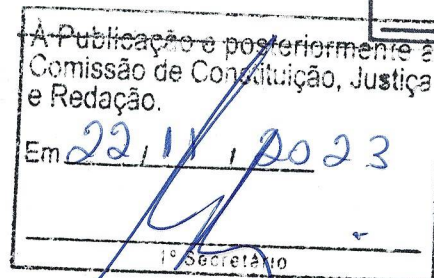 À Publicação e posteriormente à
Comissão de Constituição, Justiça
e Redação.
Em 22/11/2023
1º Secretário